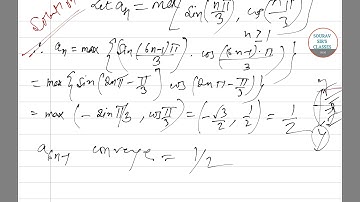 Solution Let aₙ = max { sin(nπ/3), cos(nπ/3) }
n ≥ 1
∴ aₙ = max { sin (6n-1)π/3 . cos (6n-1).π/3 }
= max { sin(2nπ - π/3) cos(2nπ - π/3) }
= max ( - sin π/3 , cos π/3 ) = ( -√3/2 , 1/2 ) = 1/2
a₆ₙ₋₁ converge = 1/2
SOURAV
SIR'S
CLASSES